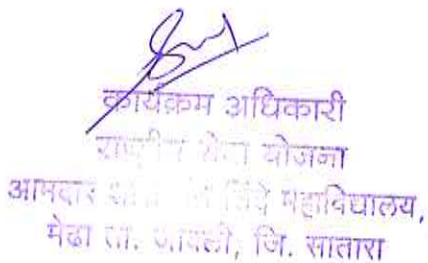 कार्यक्रम अधिकारी
राष्ट्रीय सेवा योजना
आमदार शिंदे महाविद्यालय,
मेढा ता. जावली, जि. सातारा